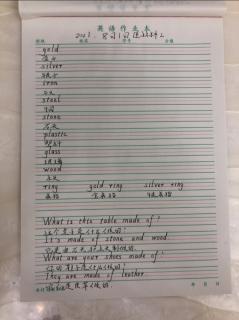 英语作业本
2023. 8月1日
gold
silver
银子
iron
steel
钢
stone
石头
plastic
塑料
glass
玻璃
wood
木头
ring gold ring silver ring
戒指 金戒指 银戒指
What is this table made of?
这个桌子是什么做的?
It's made of stone and wood.
它是由石头和木头制成的.
What are your shoes made of?
你的鞋子是什么做的?
They are made of leather.
是皮革做的.